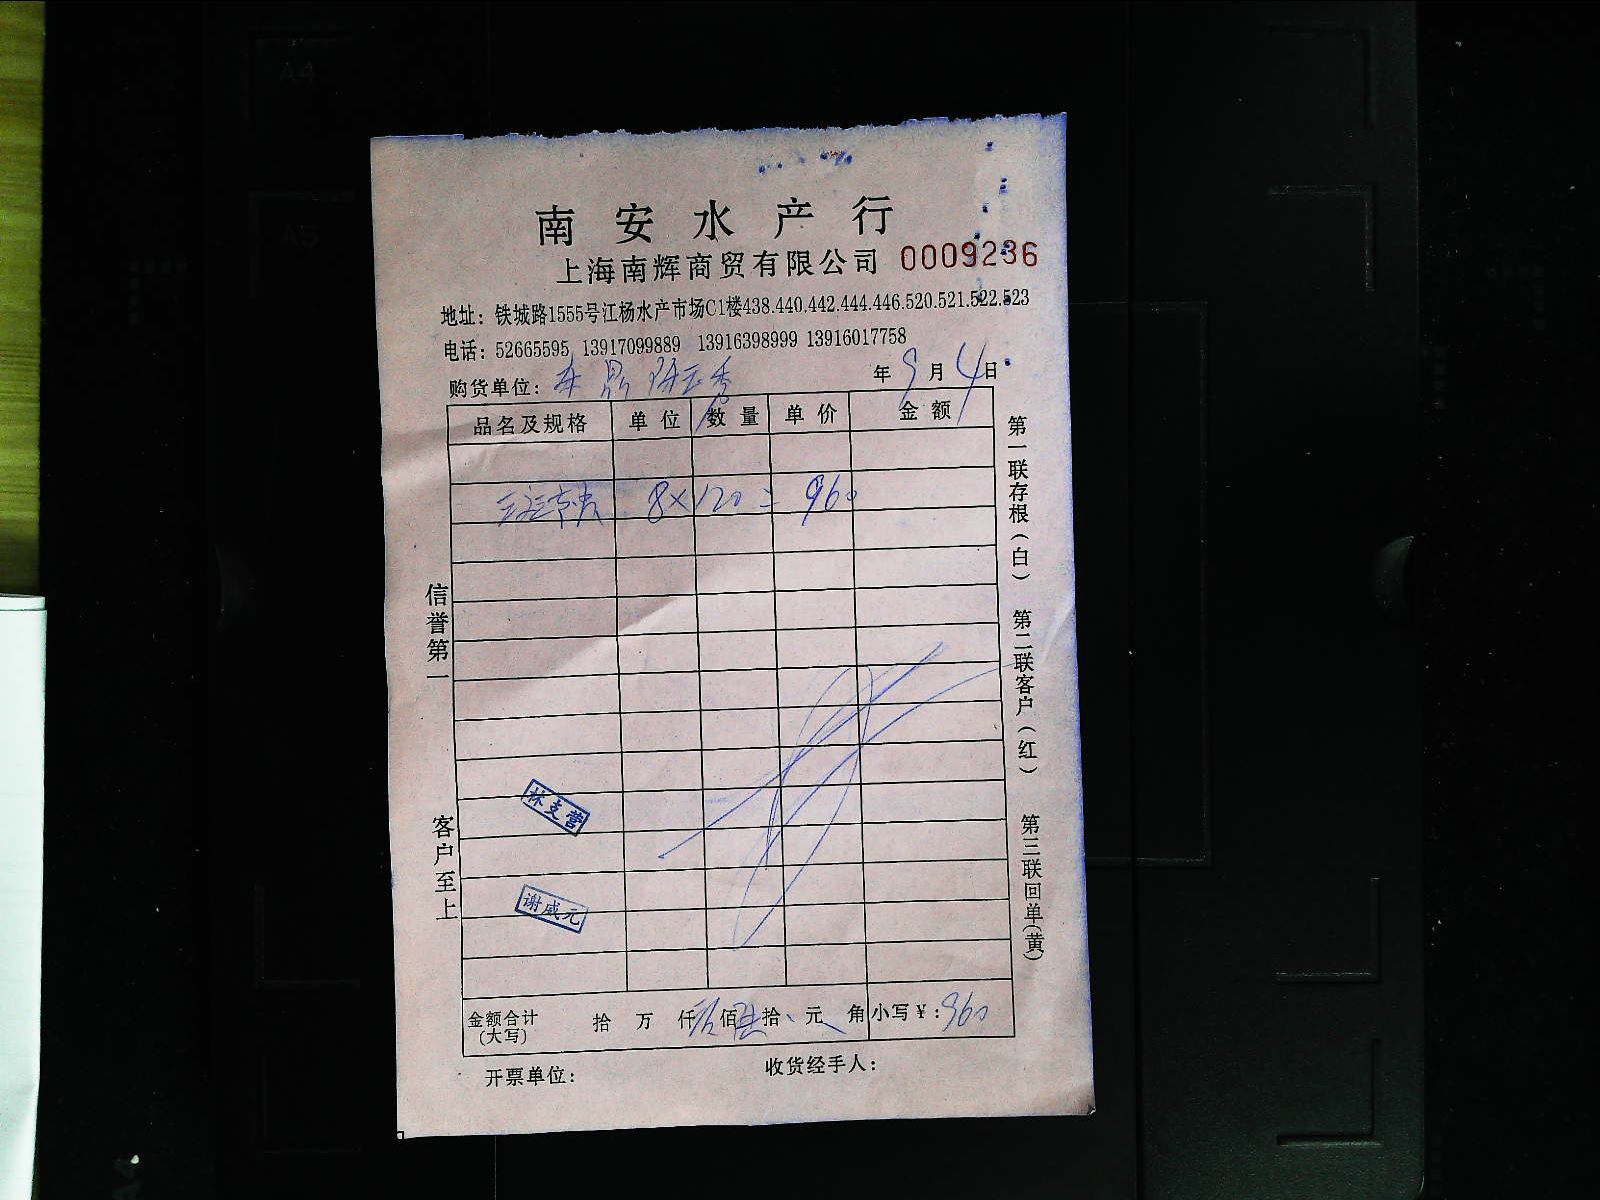 A4
A5
南安水产行
上海南辉商贸有限公司 0009236
地址：铁城路1555号江杨水产市场C1楼438.440.442.444.446.520.521.522.523
电话：52665595 13917099889 13916398999 13916017758
购货单位： 年 9 月 4 日
品名及规格 单位 数量 单价 金额
8×120=960
林支营
谢威元
金额合计 (大写) 拾 万 仟 佰 陆 拾 元 角 小写￥：960
开票单位： 收货经手人：
信誉第一
客户至上
第一联存根（白）
第二联客户（红）
第三联回单（黄）